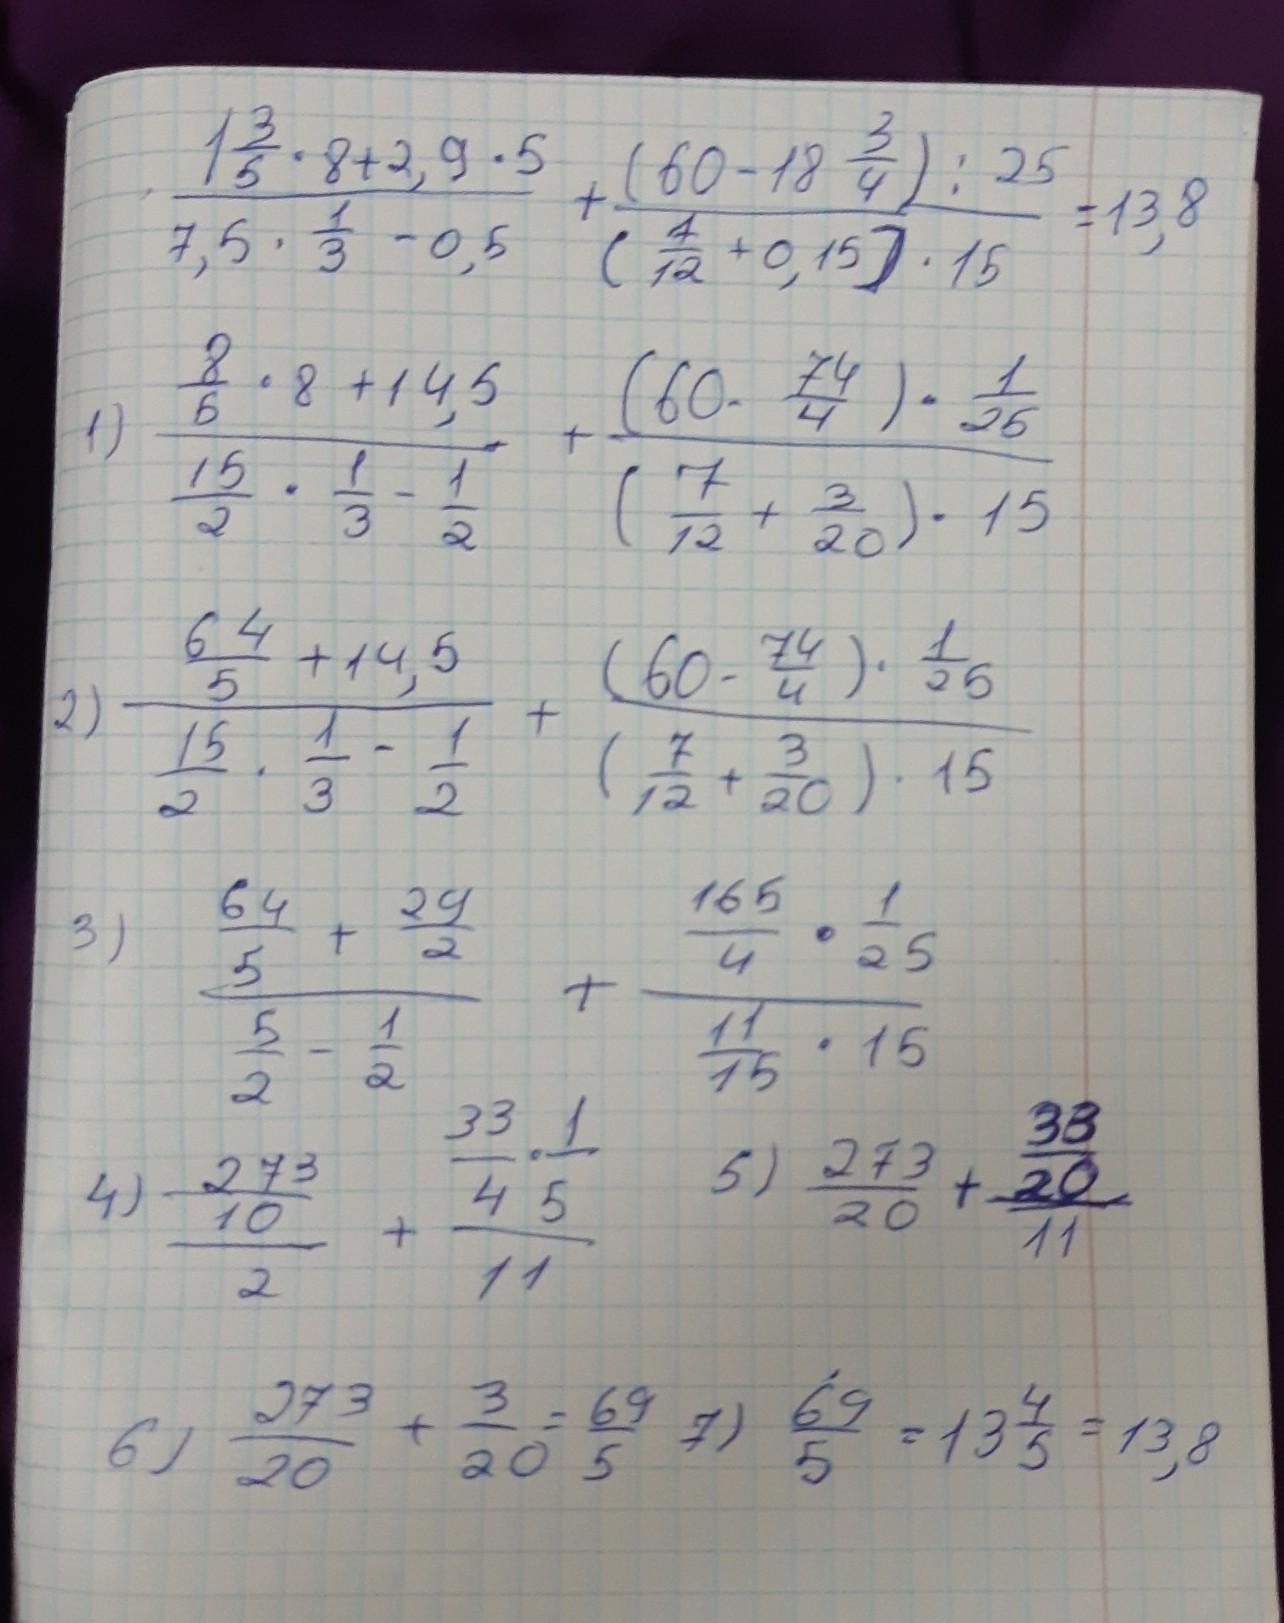 (1 3/5 · 8 + 2,9 · 5) / (7,5 · 1/3 - 0,5) + ((60 - 18 3/4) : 25) / ((7/12 + 0,15) · 15) = 13,8
1) (8/5 · 8 + 14,5) / (15/2 · 1/3 - 1/2) + ((60 - 74/4) · 1/25) / ((7/12 + 3/20) · 15)
2) (64/5 + 14,5) / (15/2 · 1/3 - 1/2) + ((60 - 74/4) · 1/25) / ((7/12 + 3/20) · 15)
3) (64/5 + 29/2) / (5/2 - 1/2) + (165/4 · 1/25) / (11/15 · 15)
4) (273/10) / 2 + (33/4 · 1/5) / 11 5) 273/20 + (33/20) / 11
6) 273/20 + 3/20 = 69/5 7) 69/5 = 13 4/5 = 13,8